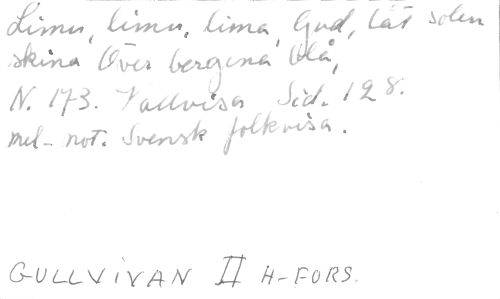 Limu, limu, lima, Gud, låt solen
skina Över bergena blå,
N. 173. Vallvisa Sid. 128.
mel- not. Svensk folkvisa.
GULLVIVAN II H-FORS.